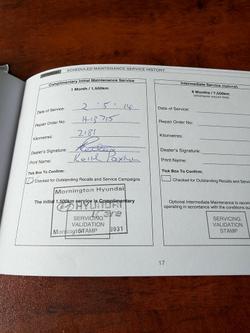 SCHEDULED MAINTENANCE SERVICE HISTORY
Complimentary Initial Maintenance Service
1 Month / 1,500km
Date of Service: 2 . 5 . 14
Repair Order No:
Kilometres: 2181
Dealer's Signature:
Print Name: Keith
Tick Box To Confirm:
Checked for Outstanding Recalls and Service Campaigns
Mornington Hyundai
The initial 1,500km service is Complimentary
HYUNDAI
SERVICING
VALIDATION
Mornington STAMP 3931
Intermediate Service (optional)
6 Months / 7,500km
Date of Service:
Repair Order No:
Kilometres:
Dealer's Signature:
Print Name:
Tick Box To Confirm:
Checked for Outstanding Recalls
Optional Intermediate Maintenance is recom
operating in accordance with the conditions ou
SERVICING
VALIDATION
STAMP
17